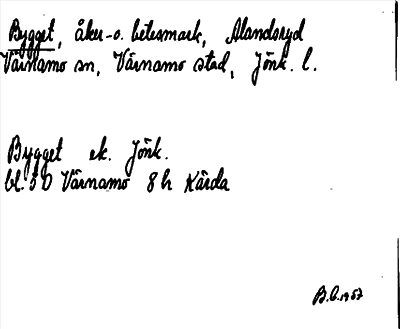 Bygget, åker- o. betesmark, Alandsryd
Värnamo sn, Värnamo stad, Jönk. l.
Bygget ek. Jönk.
bl. 5D Värnamo 8h Kärda
B.C. 1957